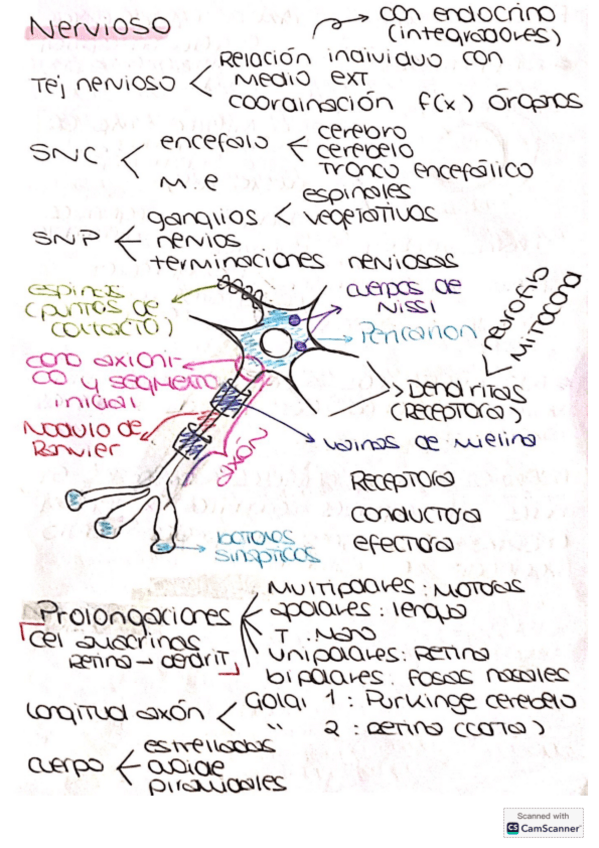 Nervioso
con endocrino
(integradores)
Tej nervioso < Relación individuo con
medio ext
coordinación f(x) órganos
SNC < encéfalo < cerebro
cerebelo
tronco encefálico
M.e
SNP < ganglios < espinales
vegetativos
nervios
terminaciones nerviosas
espinas
(puntos de
contacto)
cuerpos de
Nissl
Pericarion
neurofib
mitocond
cono axóni-
co y segmento
inicial
Dendritas
(Receptora)
Nódulo de
Ranvier
axón
vainas de mielina
Receptora
conductora
efectora
botones
sinápticos
Prolongaciones < Multipolares: Motoras
apolares: lengua
T
unipolares: Retina
bipolares: fosas nasales
cel
Retina →
Longitud axón < Golgi 1: Purkinge cerebelo
" 2: retina (corta)
cuerpo < estrelladas
piramidales
Scanned with
CS CamScanner